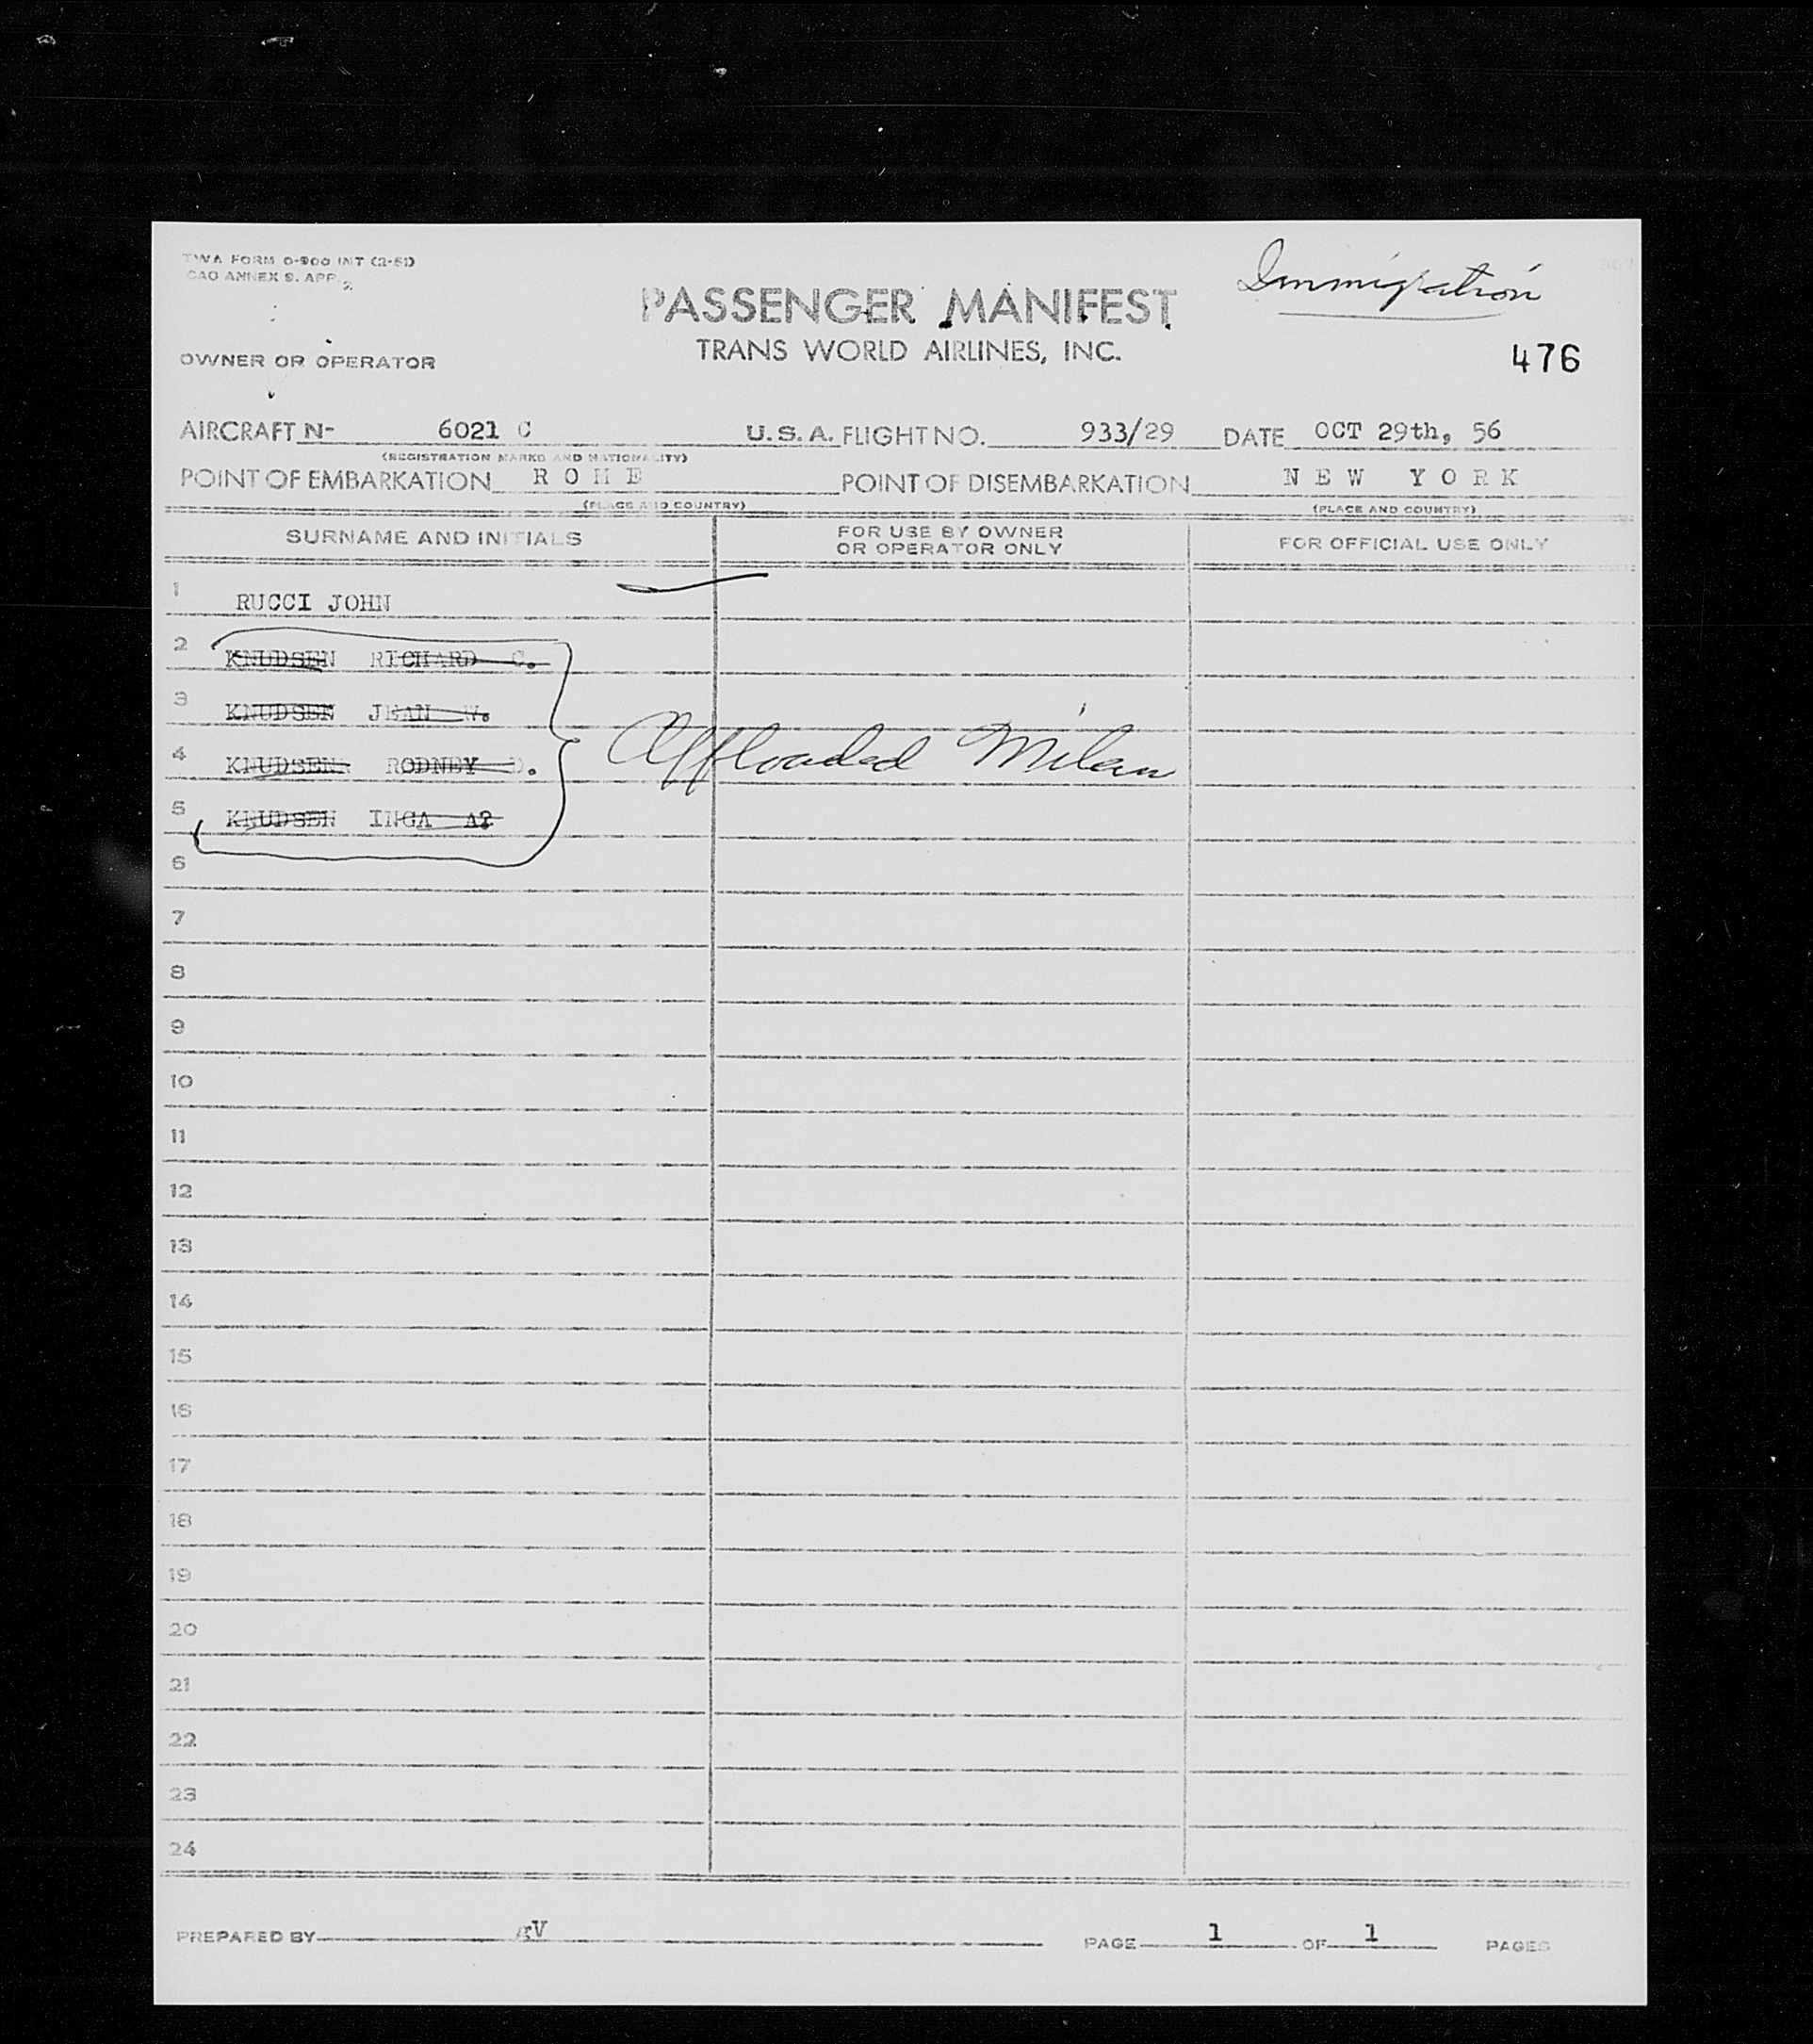 TWA FORM O-900 INT (2-51)
CAO ANNEX 9. APP. 2
Immigration
PASSENGER MANIFEST
TRANS WORLD AIRLINES, INC.
476
OWNER OR OPERATOR
AIRCRAFT N- 6021 C U.S.A. FLIGHT NO. 933/29 DATE OCT 29th, 56
(REGISTRATION MARKS AND NATIONALITY)
POINT OF EMBARKATION ROME POINT OF DISEMBARKATION NEW YORK
(PLACE AND COUNTRY) (PLACE AND COUNTRY)
SURNAME AND INITIALS FOR USE BY OWNER OR OPERATOR ONLY FOR OFFICIAL USE ONLY
1 RUCCI JOHN
2 KNUDSEN RICHARD C.
3 KNUDSEN JEAN W.
4 KNUDSEN RODNEY D. Offloaded Milan
5 KNUDSEN INGA A?
6
7
8
9
10
11
12
13
14
15
16
17
18
19
20
21
22
23
24
PREPARED BY PAGE 1 OF 1 PAGES